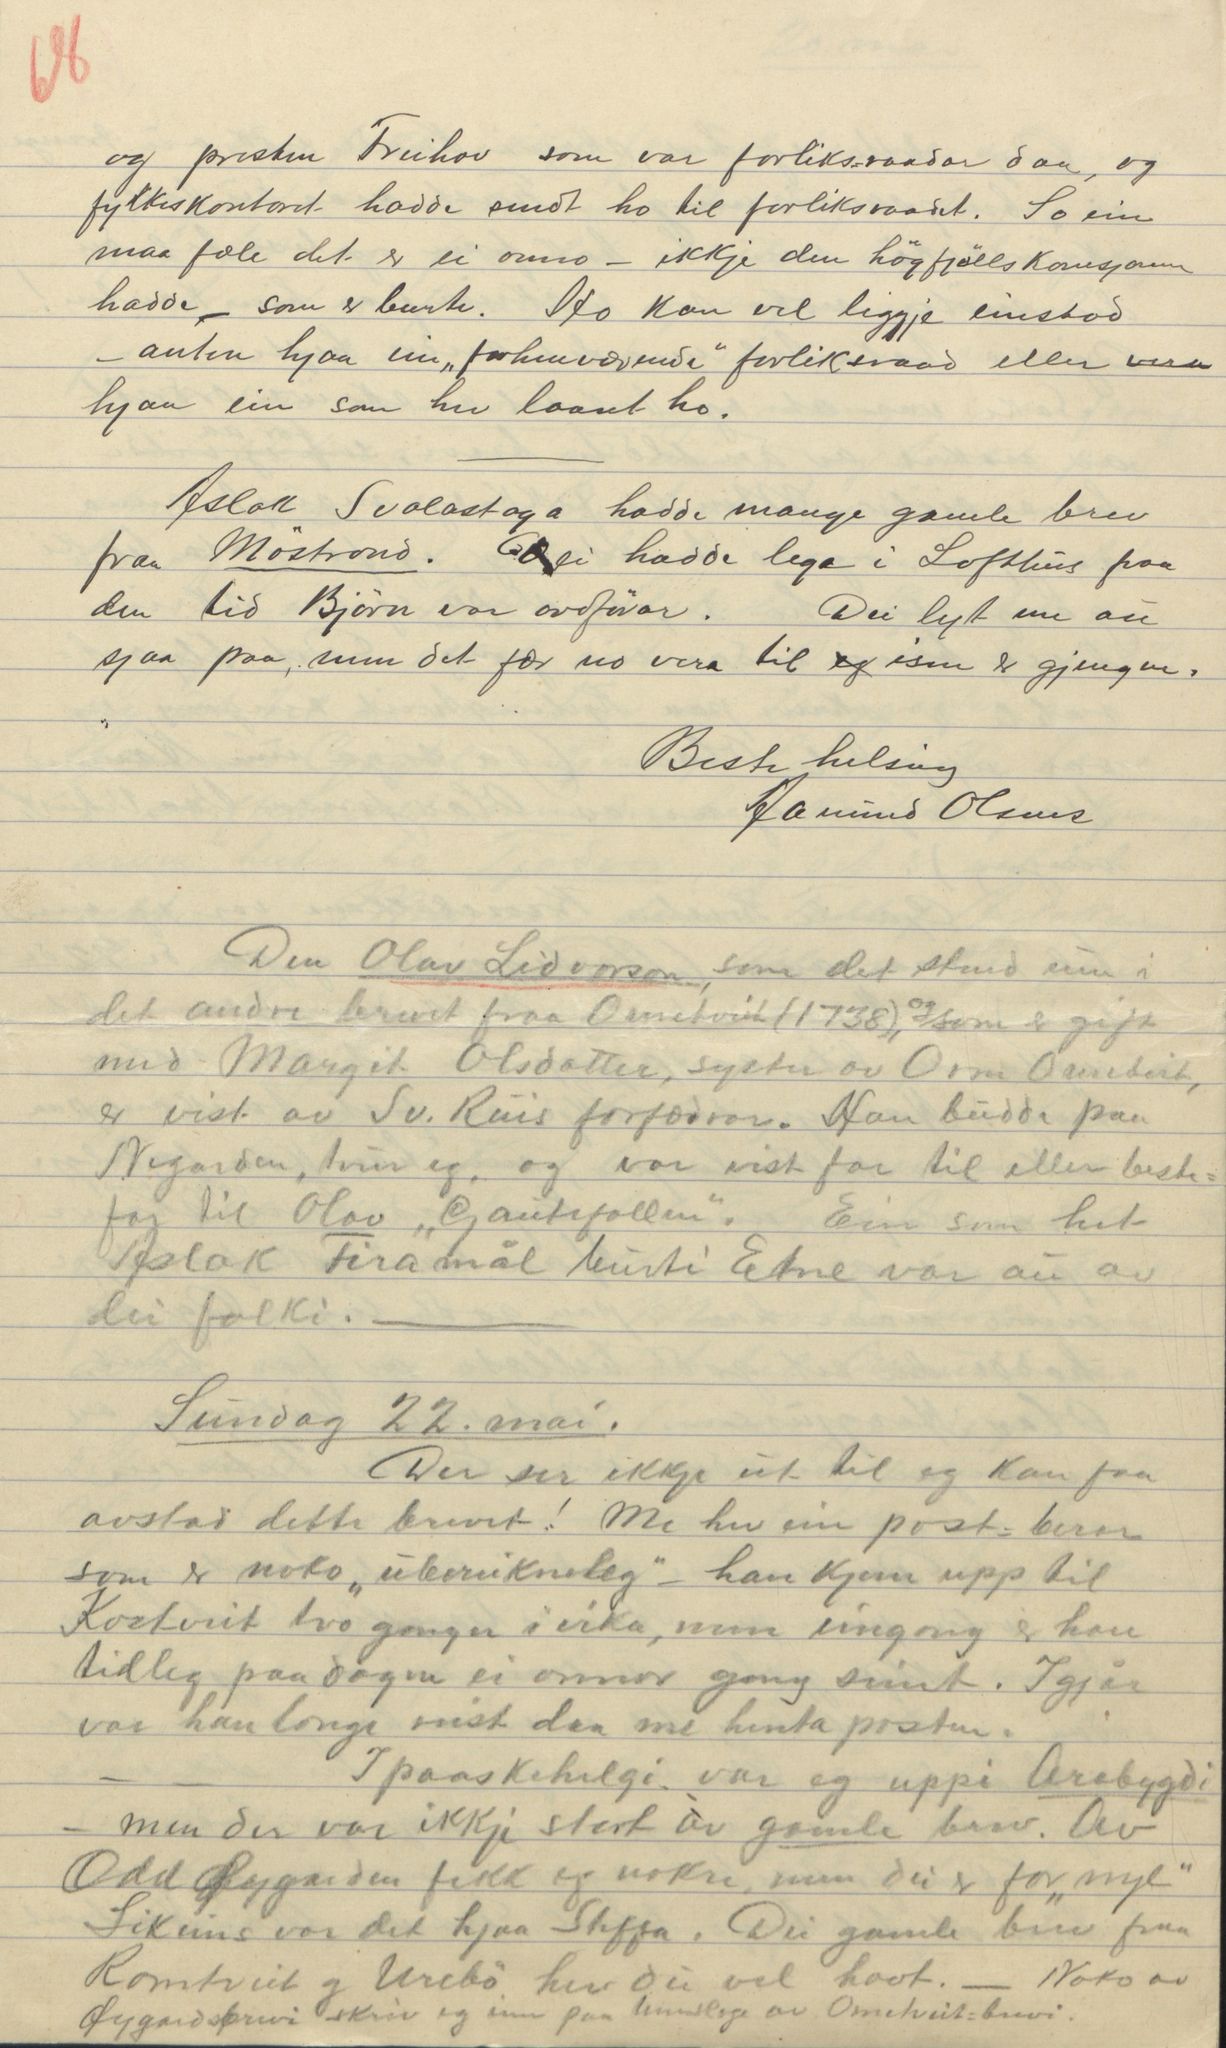 68
og presten Freihov som var forliks-raadar daa, og
fylkeskontoret hadde sendt ho til forliksraadet. So ein
maa fæle det er ei onno - ikkje den högfjellskomesjonen
hadde - som er burte. Ho kan vel liggje einstad
- anten hjaa ein „forhenværende" forliksraad eller vera
hjaa ein som hev laant ho.
Aslak Svalastoga hadde mange gamle brev
fraa Möstrond. Dei hadde lega i Lofthus paa
den tid Björn var ordförar. Dei lyt me au
sjaa paa, men det fær no vera til isen er gjengen.
Beste helsing
Aamund Olsnes
Den Olav Lidvorson, som det stend um i
det andre brevet fraa Ormetveit (1738), og som er gift
med Margit Olsdotter, syster av Orm Ormetveit,
er vist av Sv. Ruis forfedrar. Han budde paa
Negarden, trur eg, og var vist far til eller beste-
far til Olav „Gautefallen". Ein som het
Aslak Firamål burti Etne var au av
dei folki.
Sundag 22. mai.
Der ser ikkje ut til eg kan faa
avstad dette brevet! Me hev ein post-berar
som er noko „uberikneleg" - han kjem upp til
Kostveit tvo gonger i vika, men eingong er han
tidleg paa dagen ei onnor gong seint. Igjår
var han longe reist daa me henta posten.
- - I paaskehelgi var eg uppi Arebygdi
- men der var ikkje stort av gamle brev. Av
Odd Øygarden fekk eg nokre, men dei er for „nye"
Likeins var det hjaa Steffa. Dei gamle brev fraa
Romtveit og Urebö hev du vel havt. - Noko av
Øygardsbrevi skriv eg inn paa umslage av Ormetveit-brevi.